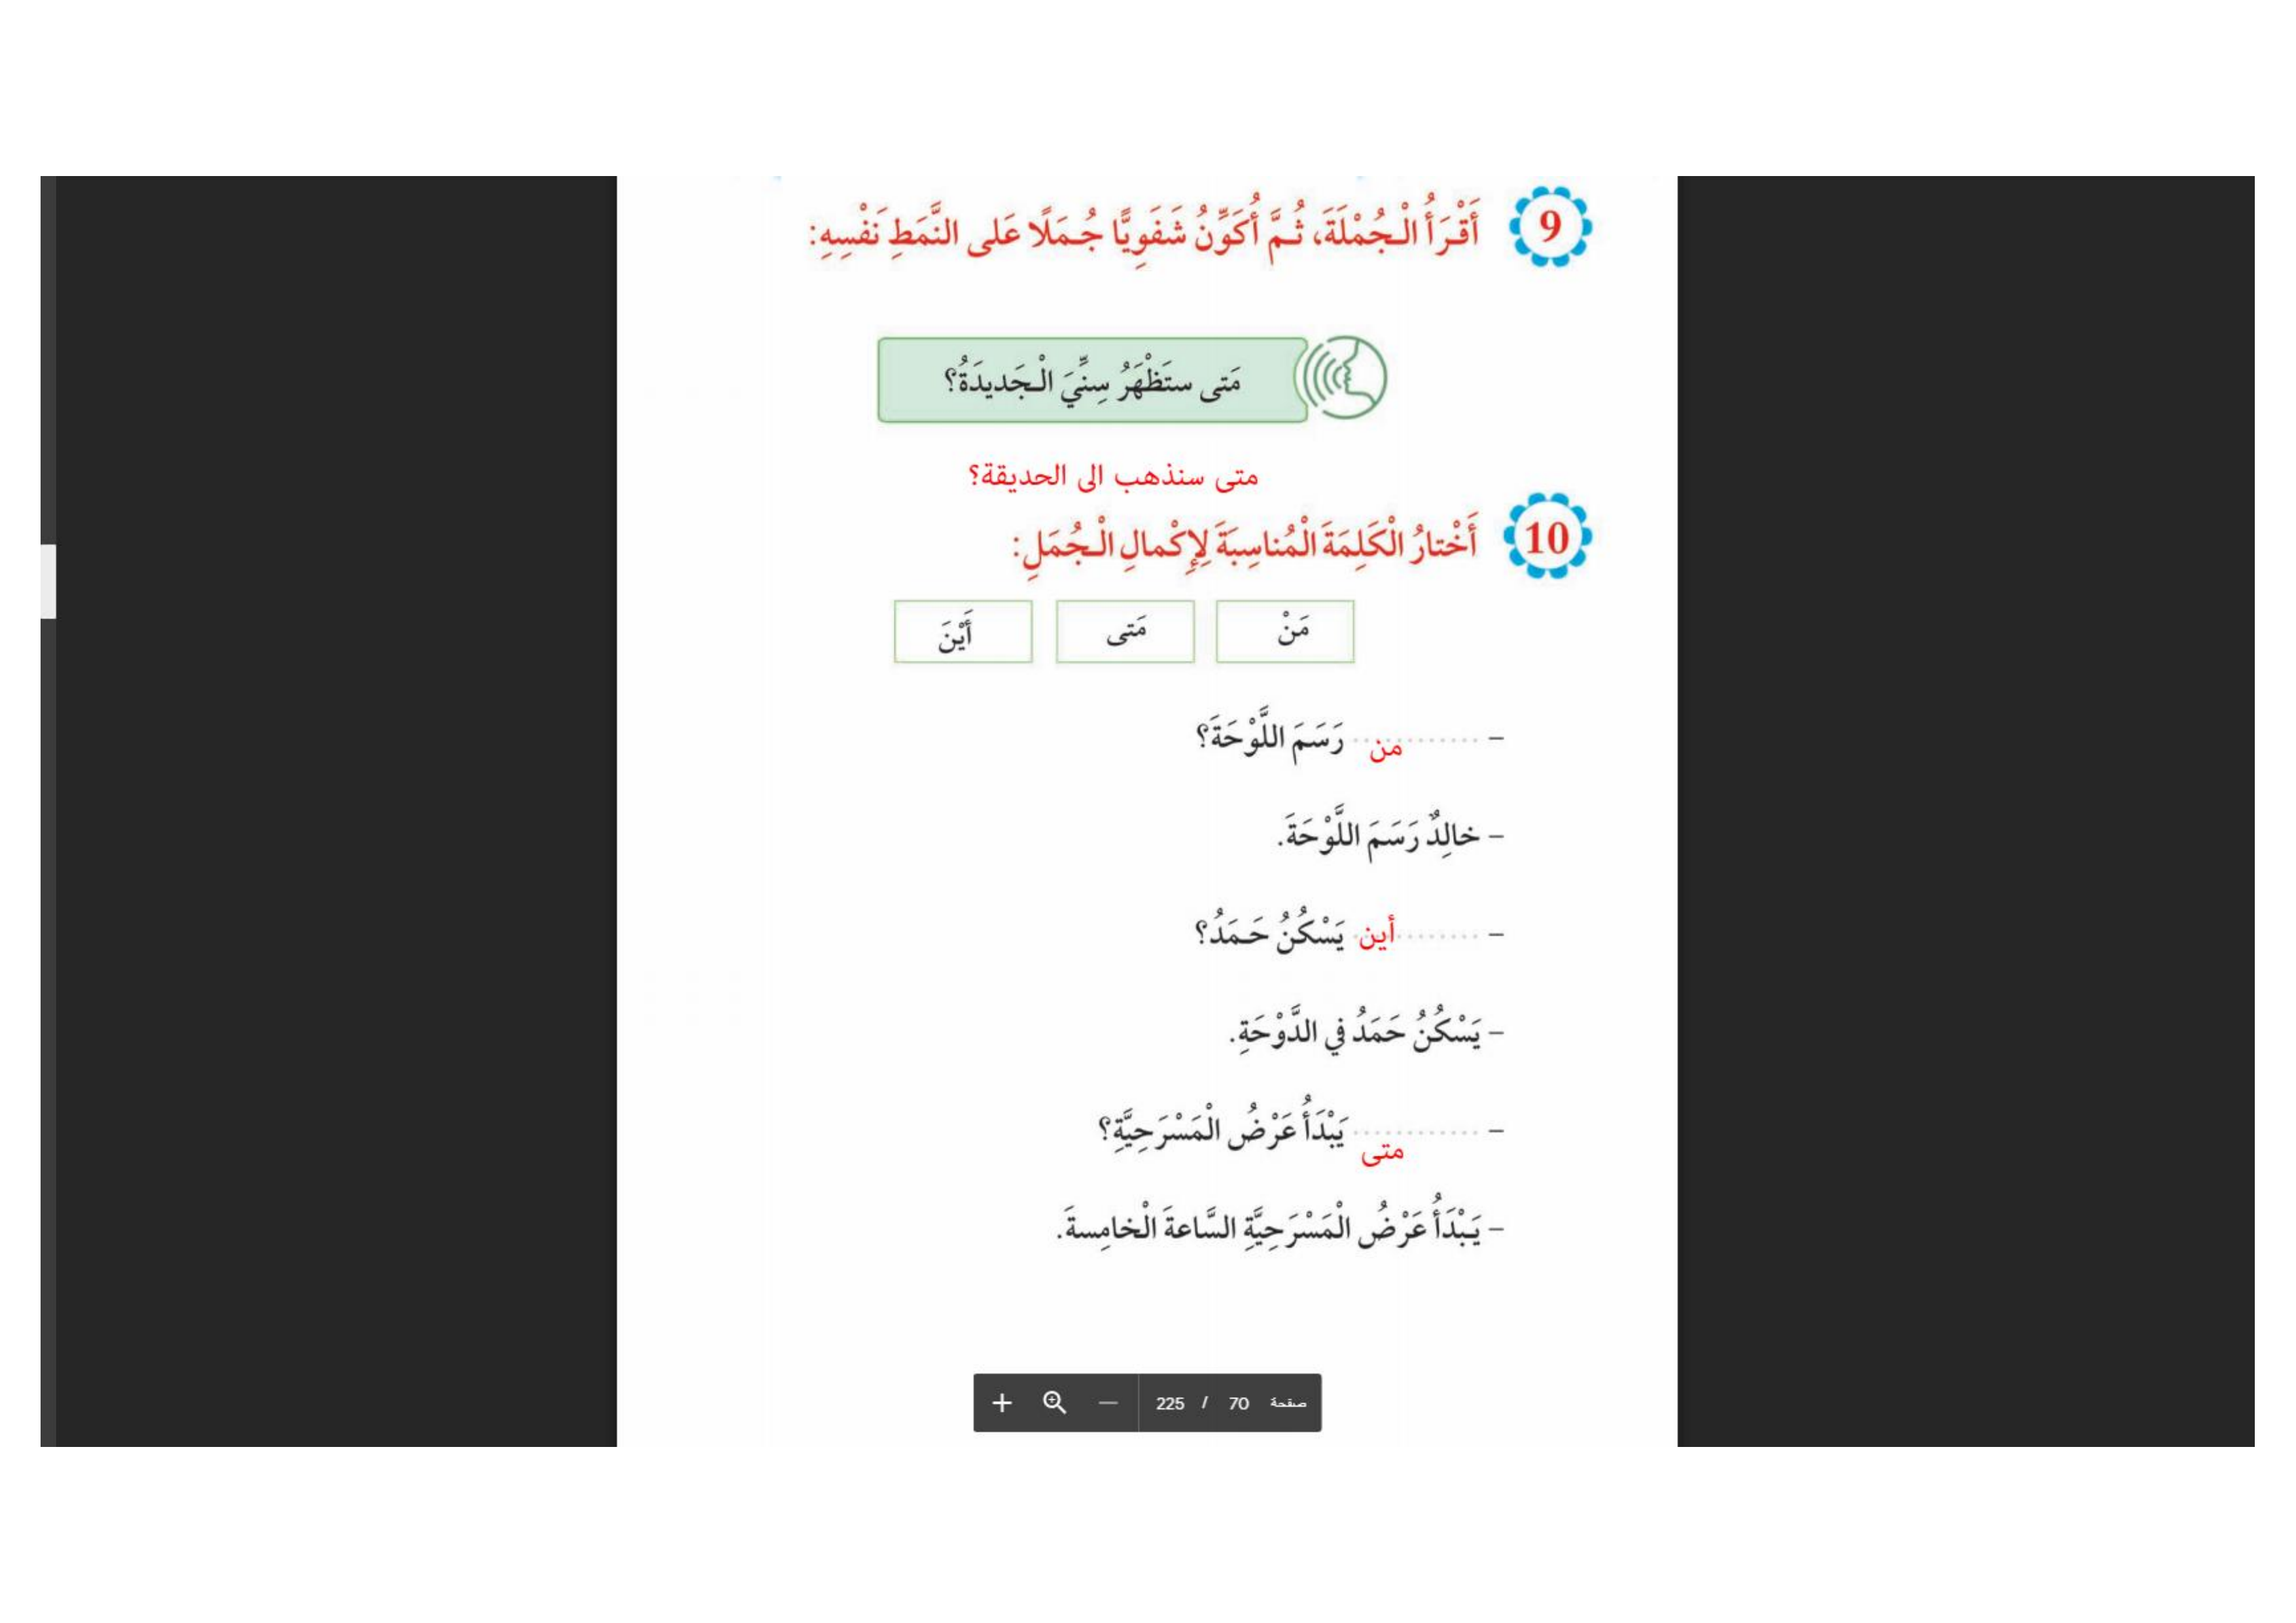 9 أَقْرَأُ الْجُمْلَةَ، ثُمَّ أُكَوِّنُ شَفَوِيًّا جُمَلًا عَلى النَّمَطِ نَفْسِهِ:
مَتى ستَظْهَرُ سِنِّيَ الْجَديدَةُ؟
متى سنذهب الى الحديقة؟
10 أَخْتارُ الْكَلِمَةَ الْمُناسِبَةَ لِإِكْمالِ الْجُمَلِ:
مَنْ مَتى أَيْنَ
– ............ من رَسَمَ اللَّوْحَةَ؟
– خالِدٌ رَسَمَ اللَّوْحَةَ.
– ............ أين يَسْكُنُ حَمَدُ؟
– يَسْكُنُ حَمَدُ في الدَّوْحَةِ.
– ............ متى يَبْدَأُ عَرْضُ الْمَسْرَحِيَّةِ؟
– يَبْدَأُ عَرْضُ الْمَسْرَحِيَّةِ السَّاعةَ الْخامِسةَ.
صفحة 70 / 225